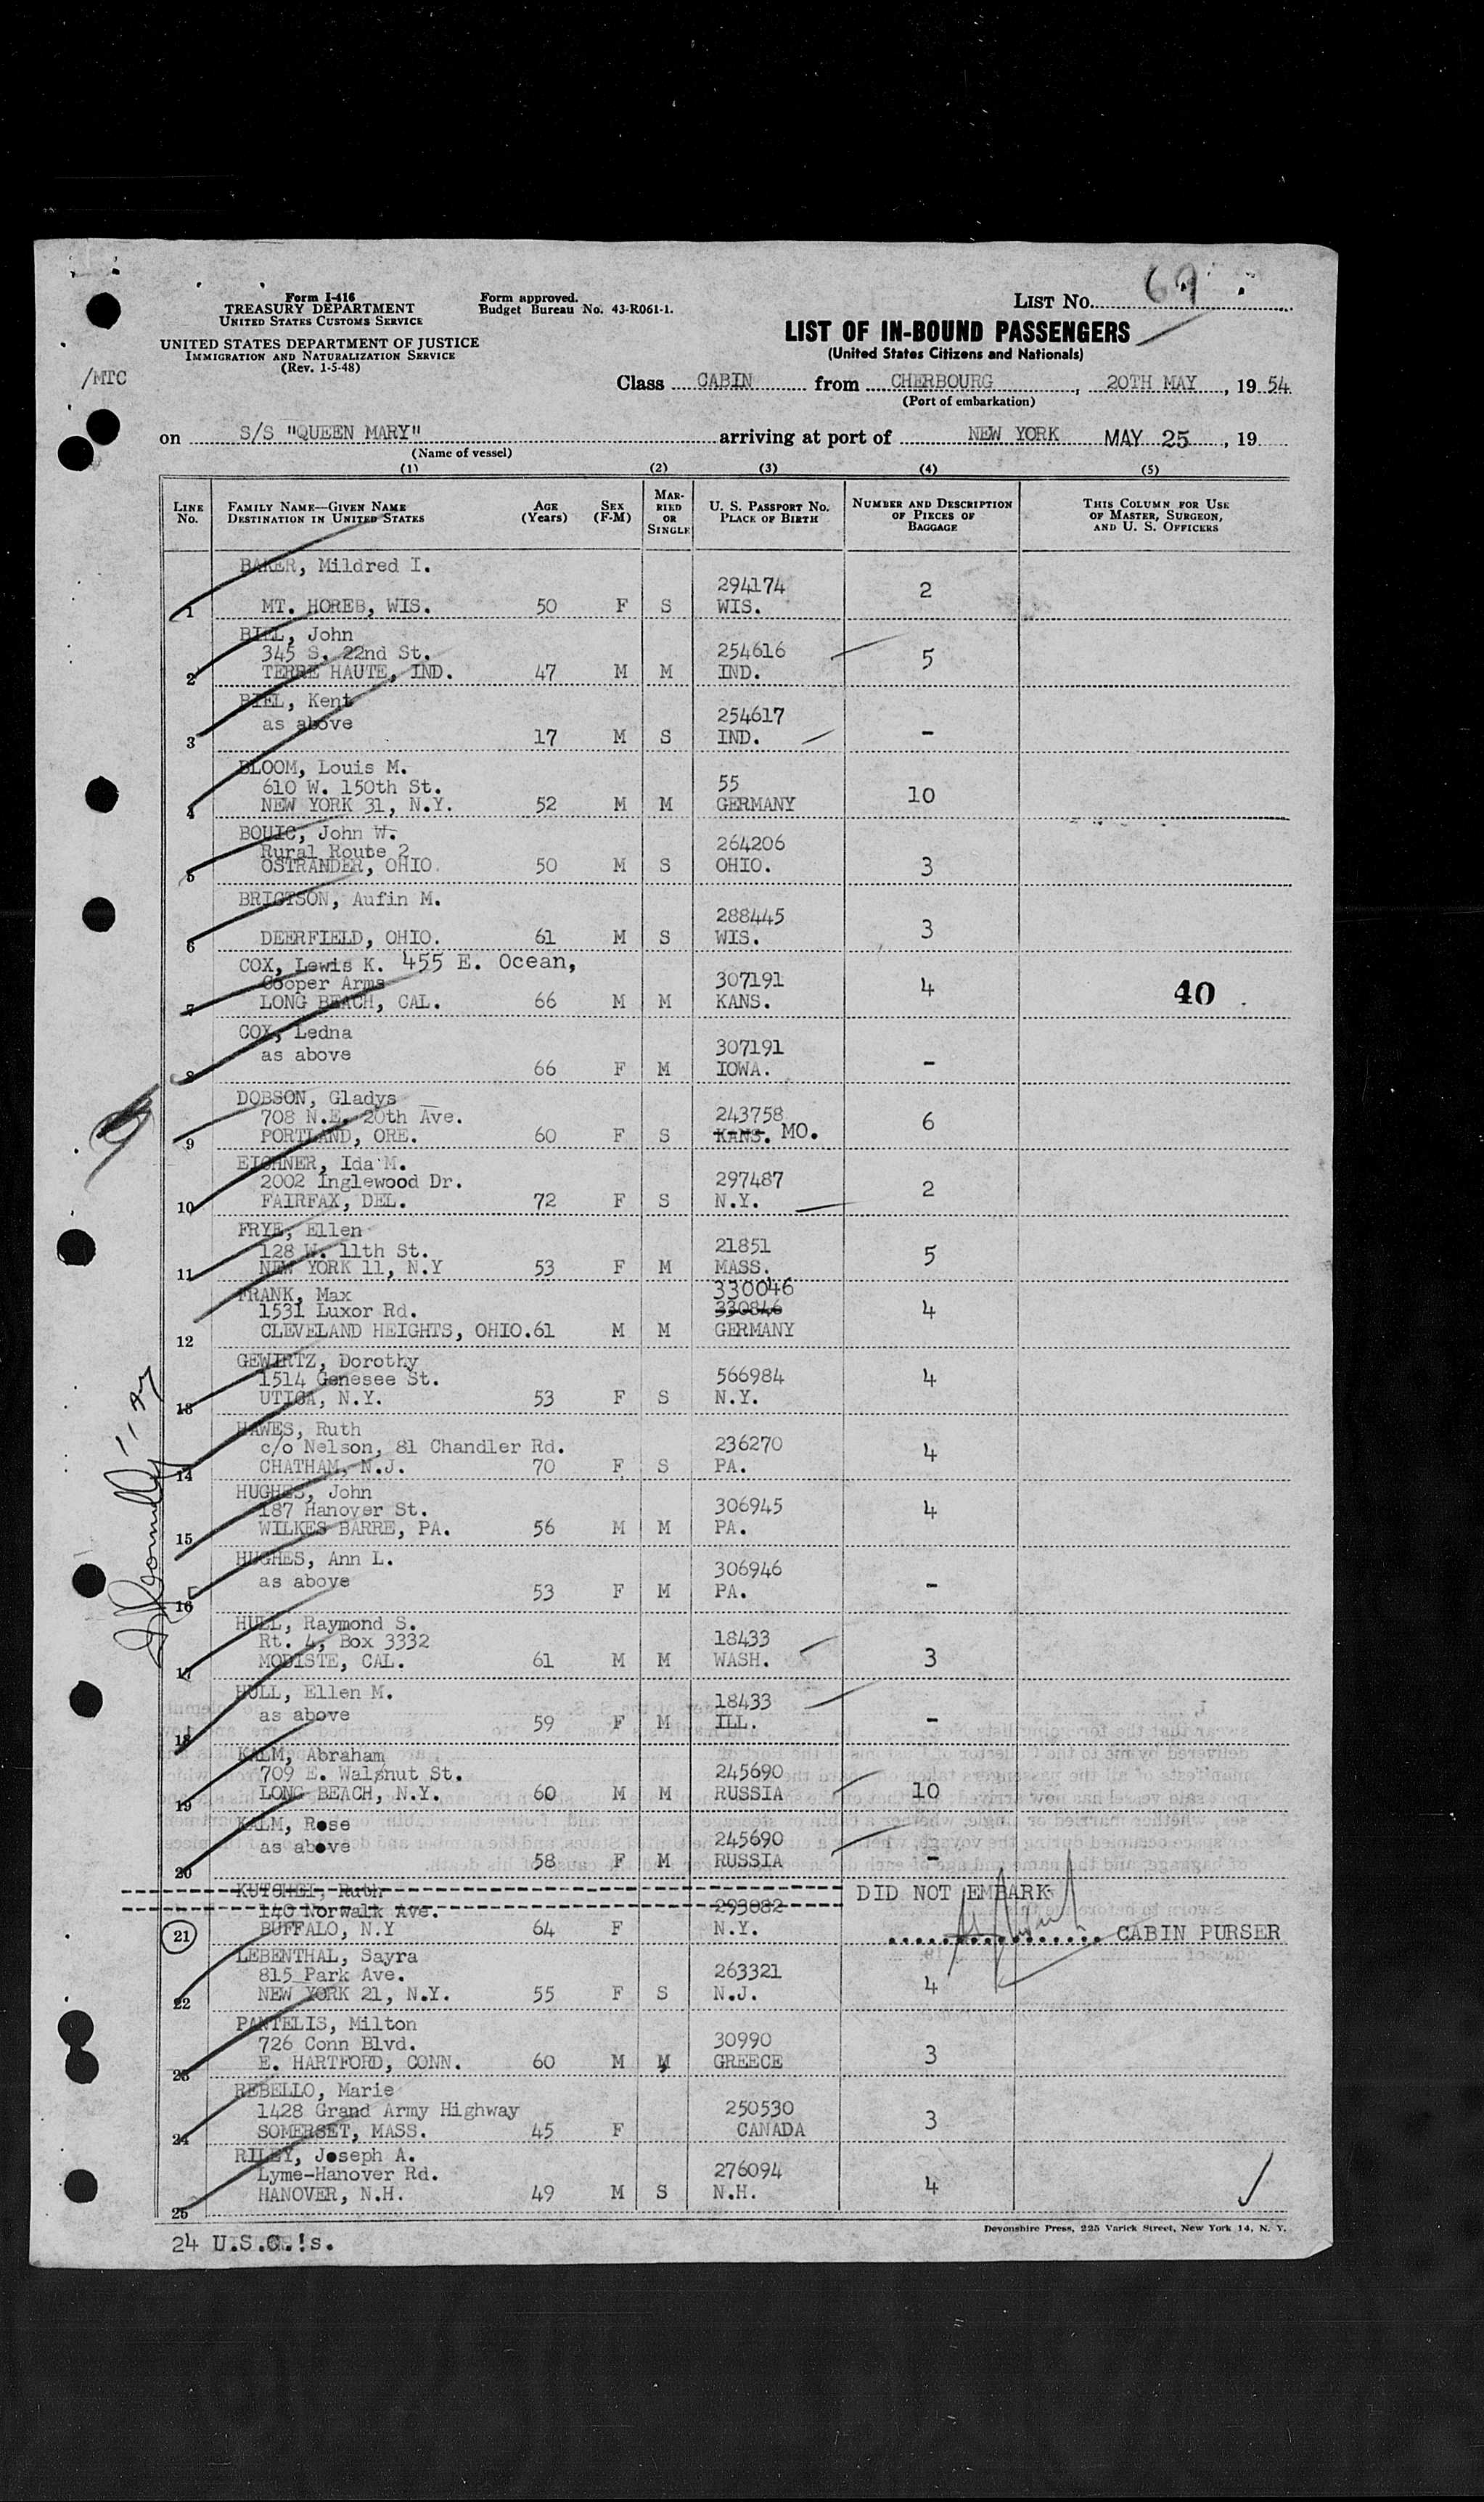 Form I-416
TREASURY DEPARTMENT
UNITED STATES CUSTOMS SERVICE
UNITED STATES DEPARTMENT OF JUSTICE
IMMIGRATION AND NATURALIZATION SERVICE
(Rev. 1-5-48)
Form approved.
Budget Bureau No. 43-R061-1.
LIST NO. 69
LIST OF IN-BOUND PASSENGERS
(United States Citizens and Nationals)
/MTC
Class CABIN from CHERBOURG, 20TH MAY, 19 54
(Port of embarkation)
on S/S "QUEEN MARY" arriving at port of NEW YORK MAY 25, 19
(Name of vessel)
(1) (2) (3) (4) (5)
LINE NO. FAMILY NAME—GIVEN NAME DESTINATION IN UNITED STATES AGE (Years) SEX (F-M) MARRIED OR SINGLE U. S. PASSPORT NO. PLACE OF BIRTH NUMBER AND DESCRIPTION OF PIECES OF BAGGAGE THIS COLUMN FOR USE OF MASTER, SURGEON, AND U. S. OFFICERS
BAKER, Mildred I.
294174 2
1 MT. HOREB, WIS. 50 F S WIS.
BIEL, John
345 S. 22nd St. 254616 5
2 TERRE HAUTE, IND. 47 M M IND.
BIEL, Kent
as above 254617
3 17 M S IND. -
BLOOM, Louis M.
610 W. 150th St. 55 10
4 NEW YORK 31, N.Y. 52 M M GERMANY
BOUIC, John W.
Rural Route 2 264206
5 OSTRANDER, OHIO. 50 M S OHIO. 3
BRIGTSON, Aufin M.
288445 3
6 DEERFIELD, OHIO. 61 M S WIS.
COX, Lewis K. 455 E. Ocean,
Cooper Arms 307191 4 40
7 LONG BEACH, CAL. 66 M M KANS.
COX, Ledna
as above 307191
8 66 F M IOWA. -
DOBSON, Gladys
708 N.E. 20th Ave. 243758 6
9 PORTLAND, ORE. 60 F S KANS. MO.
EICHNER, Ida M.
2002 Inglewood Dr. 297487 2
10 FAIRFAX, DEL. 72 F S N.Y.
FRYE, Ellen
128 W. 11th St. 21851 5
11 NEW YORK 11, N.Y 53 F M MASS.
FRANK, Max 330046
1531 Luxor Rd. 330846 4
12 CLEVELAND HEIGHTS, OHIO. 61 M M GERMANY
GEWIRTZ, Dorothy
1514 Genesee St. 566984 4
13 UTICA, N.Y. 53 F S N.Y.
HAWES, Ruth
c/o Nelson, 81 Chandler Rd. 236270 4
14 CHATHAM, N.J. 70 F S PA.
HUGHES, John
187 Hanover St. 306945 4
15 WILKES BARRE, PA. 56 M M PA.
HUGHES, Ann L.
as above 306946
16 53 F M PA. -
HULL, Raymond S.
Rt. 4, Box 3332 18433
17 MODISTE, CAL. 61 M M WASH. 3
HULL, Ellen M.
as above 18433
18 59 F M ILL. -
KALM, Abraham
709 E. Walnut St. 245690
19 LONG BEACH, N.Y. 60 M M RUSSIA 10
KALM, Rose
as above 245690
20 58 F M RUSSIA -
KUTCHEI, Ruth DID NOT EMBARK
140 Norwalk Ave. 293082
21 BUFFALO, N.Y 64 F N.Y. CABIN PURSER
LEBENTHAL, Sayra
815 Park Ave. 263321 4
22 NEW YORK 21, N.Y. 55 F S N.J.
PANTELIS, Milton
726 Conn Blvd. 30990 3
23 E. HARTFORD, CONN. 60 M M GREECE
REBELLO, Marie
1428 Grand Army Highway 250530 3
24 SOMERSET, MASS. 45 F CANADA
RILEY, Joseph A.
Lyme-Hanover Rd. 276094 4
25 HANOVER, N.H. 49 M S N.H.
Devonshire Press, 225 Varick Street, New York 14, N. Y.
24 U.S.C.'s.